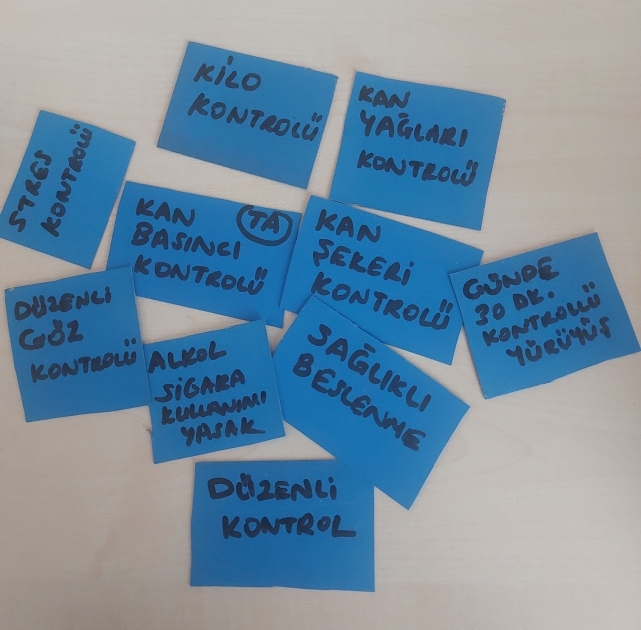 KİLO
KONTROLÜ
KAN
YAĞLARI
KONTROLÜ
STRES
KONTROLÜ
KAN TA
BASINCI
KONTROLÜ
KAN
ŞEKERİ
KONTROLÜ
GÜNDE
30 DK.
KONTROLLÜ
YÜRÜYÜŞ
DÜZENLİ
GÖZ
KONTROLÜ
ALKOL
SİGARA
KULLANIMI
YASAK
SAĞLIKLI
BESLENME
DÜZENLİ
KONTROL